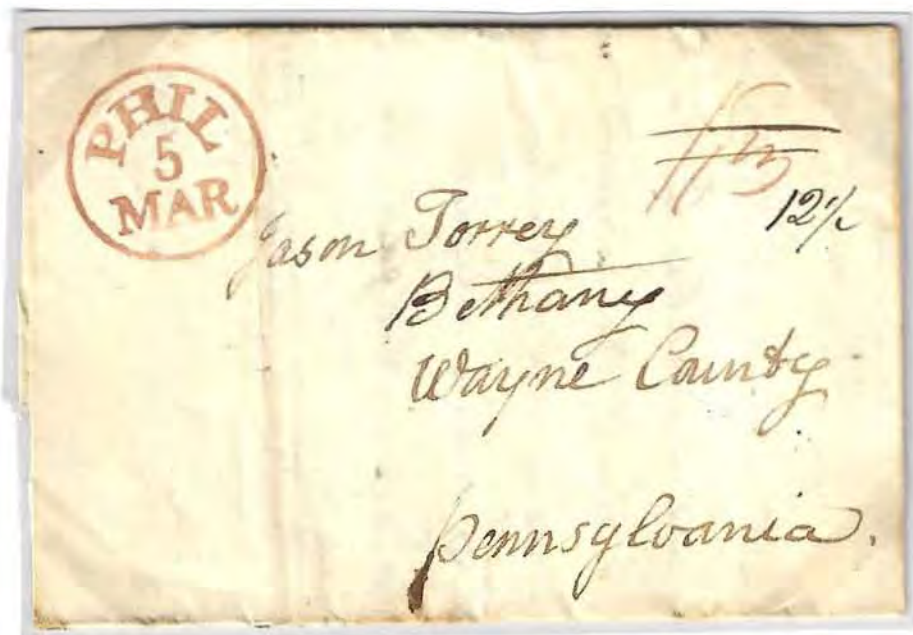 PHIL
5
MAR
12½
Jason Torrey
Bethany
Wayne County
Pennsylvania.